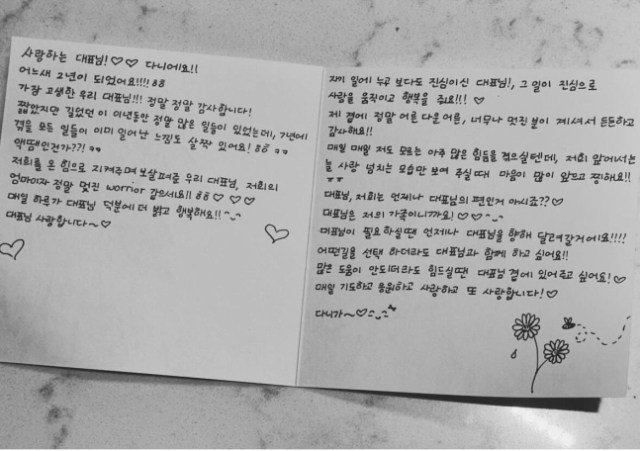 사랑하는 대표님!♡♡ 다니에요!!
어느새 2년이 되었어요!!!! ㅠㅠ
가장 고생한 우리 대표님!!! 정말 정말 감사합니다!
짧았지만 길었던 이 이년동안 정말 많은 일들이 있었는데, 7년에
겪을 모든 일들이 이미 일어난 느낌도 살짝 있어요! ㅠㅠ ㅋㅋ
액땜인건가??! ㅋㅋ
저희를 온 힘으로 지켜주며 보살펴준 우리 대표님, 저희의
엄마이자 정말 멋진 worrior 같으세요!! ㅠㅠ ♡ ♡ ♡
매일 하루가 대표님 덕분에 더 밝고 행복해요!! ^_^
대표님 사랑합니다~♡
자기 일에 누구 보다도 진심이신 대표님!, 그 일이 진심으로
사람을 움직이고 행복을 줘요!!! ♡
제 곁에 정말 어른 다운 어른, 너무나 멋진 분이 계셔서 든든하고
감사해요!!
매일 매일 저도 모르는 아주 많은 힘듦을 겪으실텐데, 저희 앞에서는
늘 사랑 넘치는 모습만 보여 주실 때 마음이 많이 아프고 찡해요!!
ㅜㅜ
대표님, 저희는 언제나 대표님의 편인거 아시죠??♡
대표님은 저의 가족이니까요! ♡♡^_^
대표님이 필요하실땐 언제나 대표님을 향해 달려갈거에요!!!!
어떤길을 선택 하더라도 대표님과 함께 하고 싶어요!!
많은 도움이 안되더라도 힘드실땐 대표님 곁에 있어주고 싶어요!♡
매일 기도하고 응원하고 사랑하고 또 사랑합니다!♡
다니가~♡